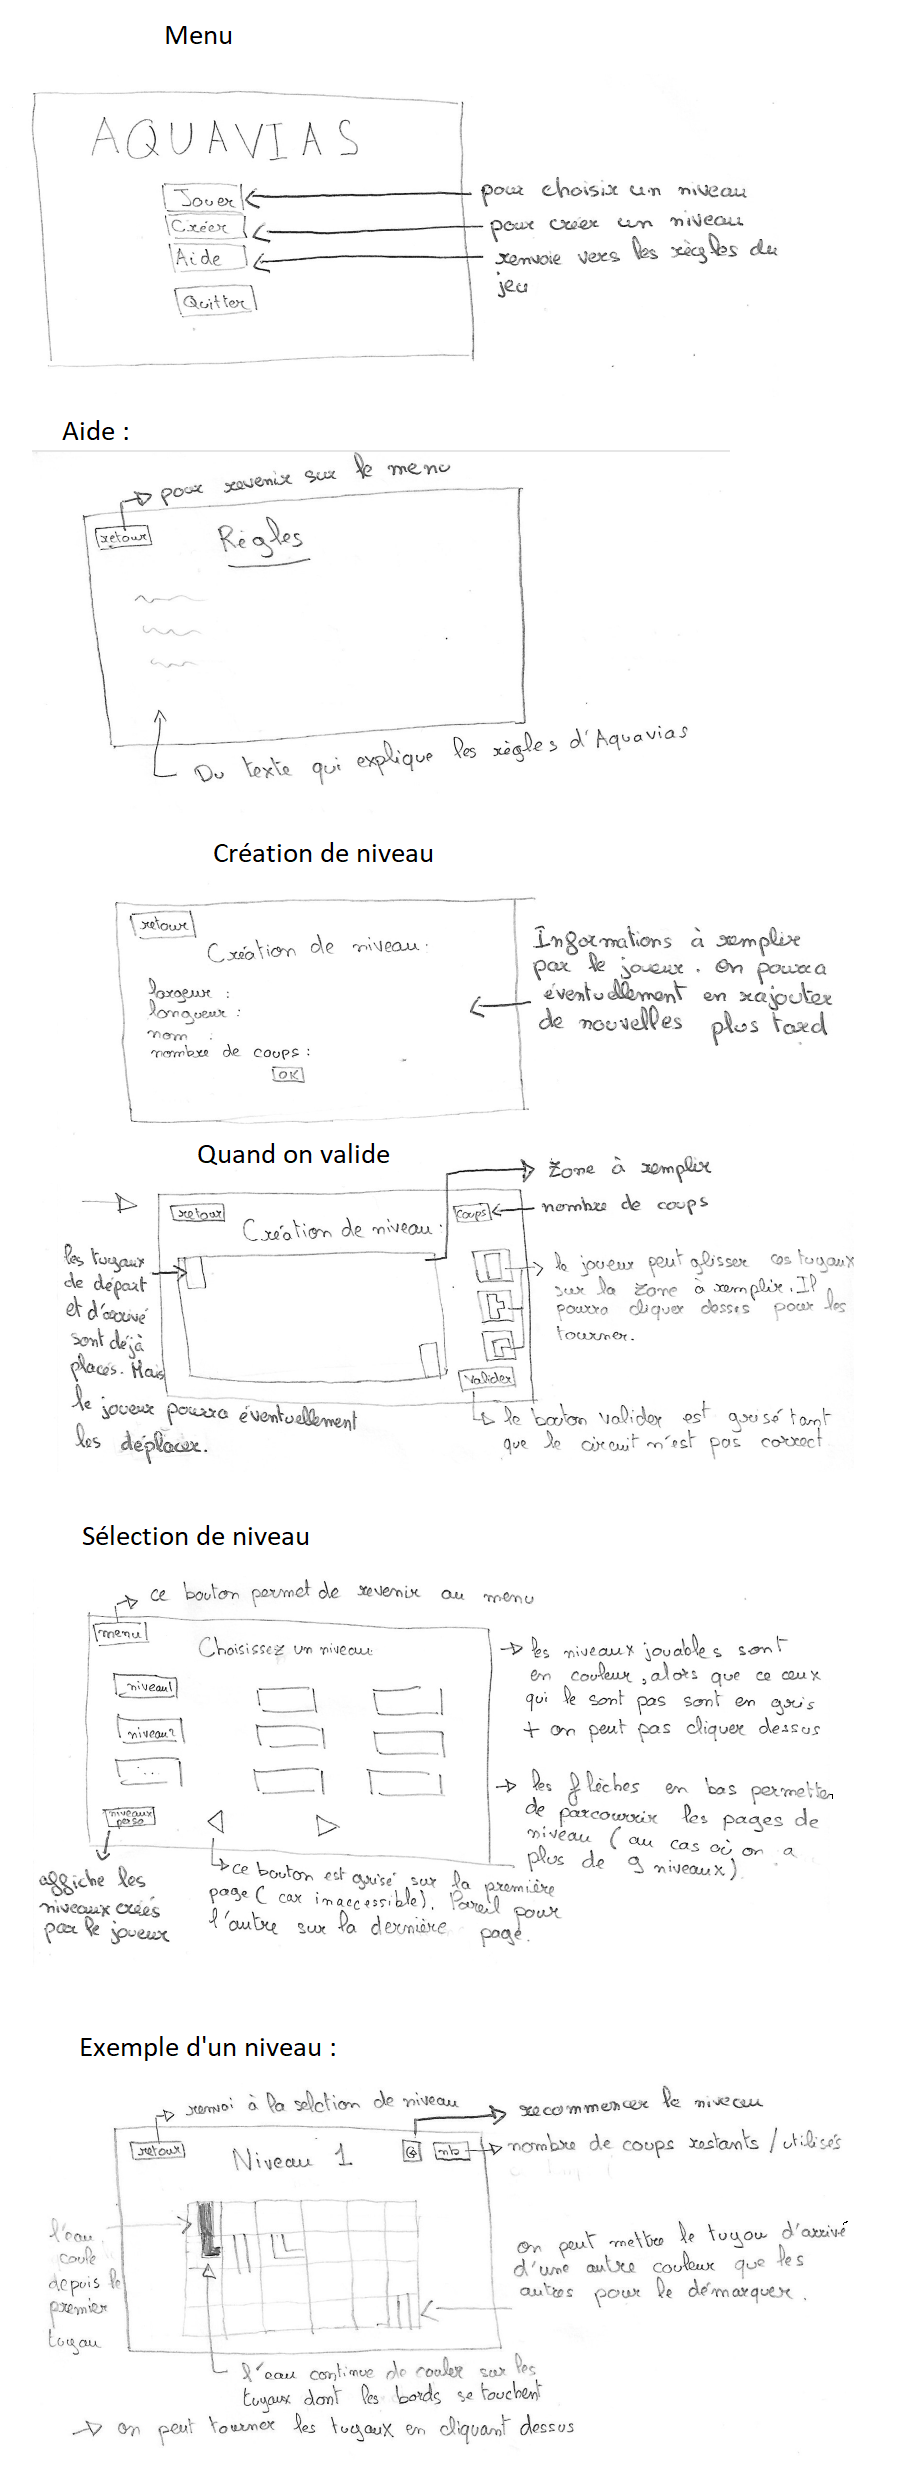 Menu
AQUAVIAS
Jouer
pour choisir un niveau
Créer
pour créer un niveau
Aide
renvoie vers les règles du
jeu
Quitter
Aide :
pour revenir sur le menu
retour
Règles
Du texte qui explique les règles d'Aquavias
Création de niveau
retour
Création de niveau.
largeur :
longueur :
nom :
nombre de coups :
OK
Informations à remplir
par le joueur. On pourra
éventuellement en rajouter
de nouvelles plus tard
Quand on valide
Zone à remplir
retour
Création de niveau.
coups
nombre de coups
les tuyaux
de départ
et d'arrivé
sont déjà
placés. Mais
le joueur pourra éventuellement
les déplacer.
le joueur peut glisser ces tuyaux
sur la zone à remplir. Il
pourra cliquer dessus pour les
tourner.
Valider
le bouton valider est grisé tant
que le circuit n'est pas correct
Sélection de niveau
ce bouton permet de revenir au menu
menu
Choisissez un niveau
niveau1
niveau2
...
niveaux
perso
les niveaux jouables sont
en couleur, alors que ce ceux
qui le sont pas sont en gris
+ on peut pas cliquer dessus
les flèches en bas permetten
de parcourrir les pages de
niveau (au cas où on a
plus de 9 niveaux)
affiche les
niveaux créés
par le joueur
ce bouton est grisé sur la première
page (car inaccessible). Pareil pour
l'autre sur la dernière page.
Exemple d'un niveau :
renvoi à la selction de niveau
recommencer le niveau
retour
Niveau 1
nb
nombre de coups restants / utilisés
l'eau
coule
depuis le
premier
tuyau
on peut mettre le tuyau d'arrivé
d'une autre couleur que les
autres pour le démarquer.
l'eau continue de couler sur les
tuyaux dont les bords se touchent
on peut tourner les tuyaux en cliquant dessus